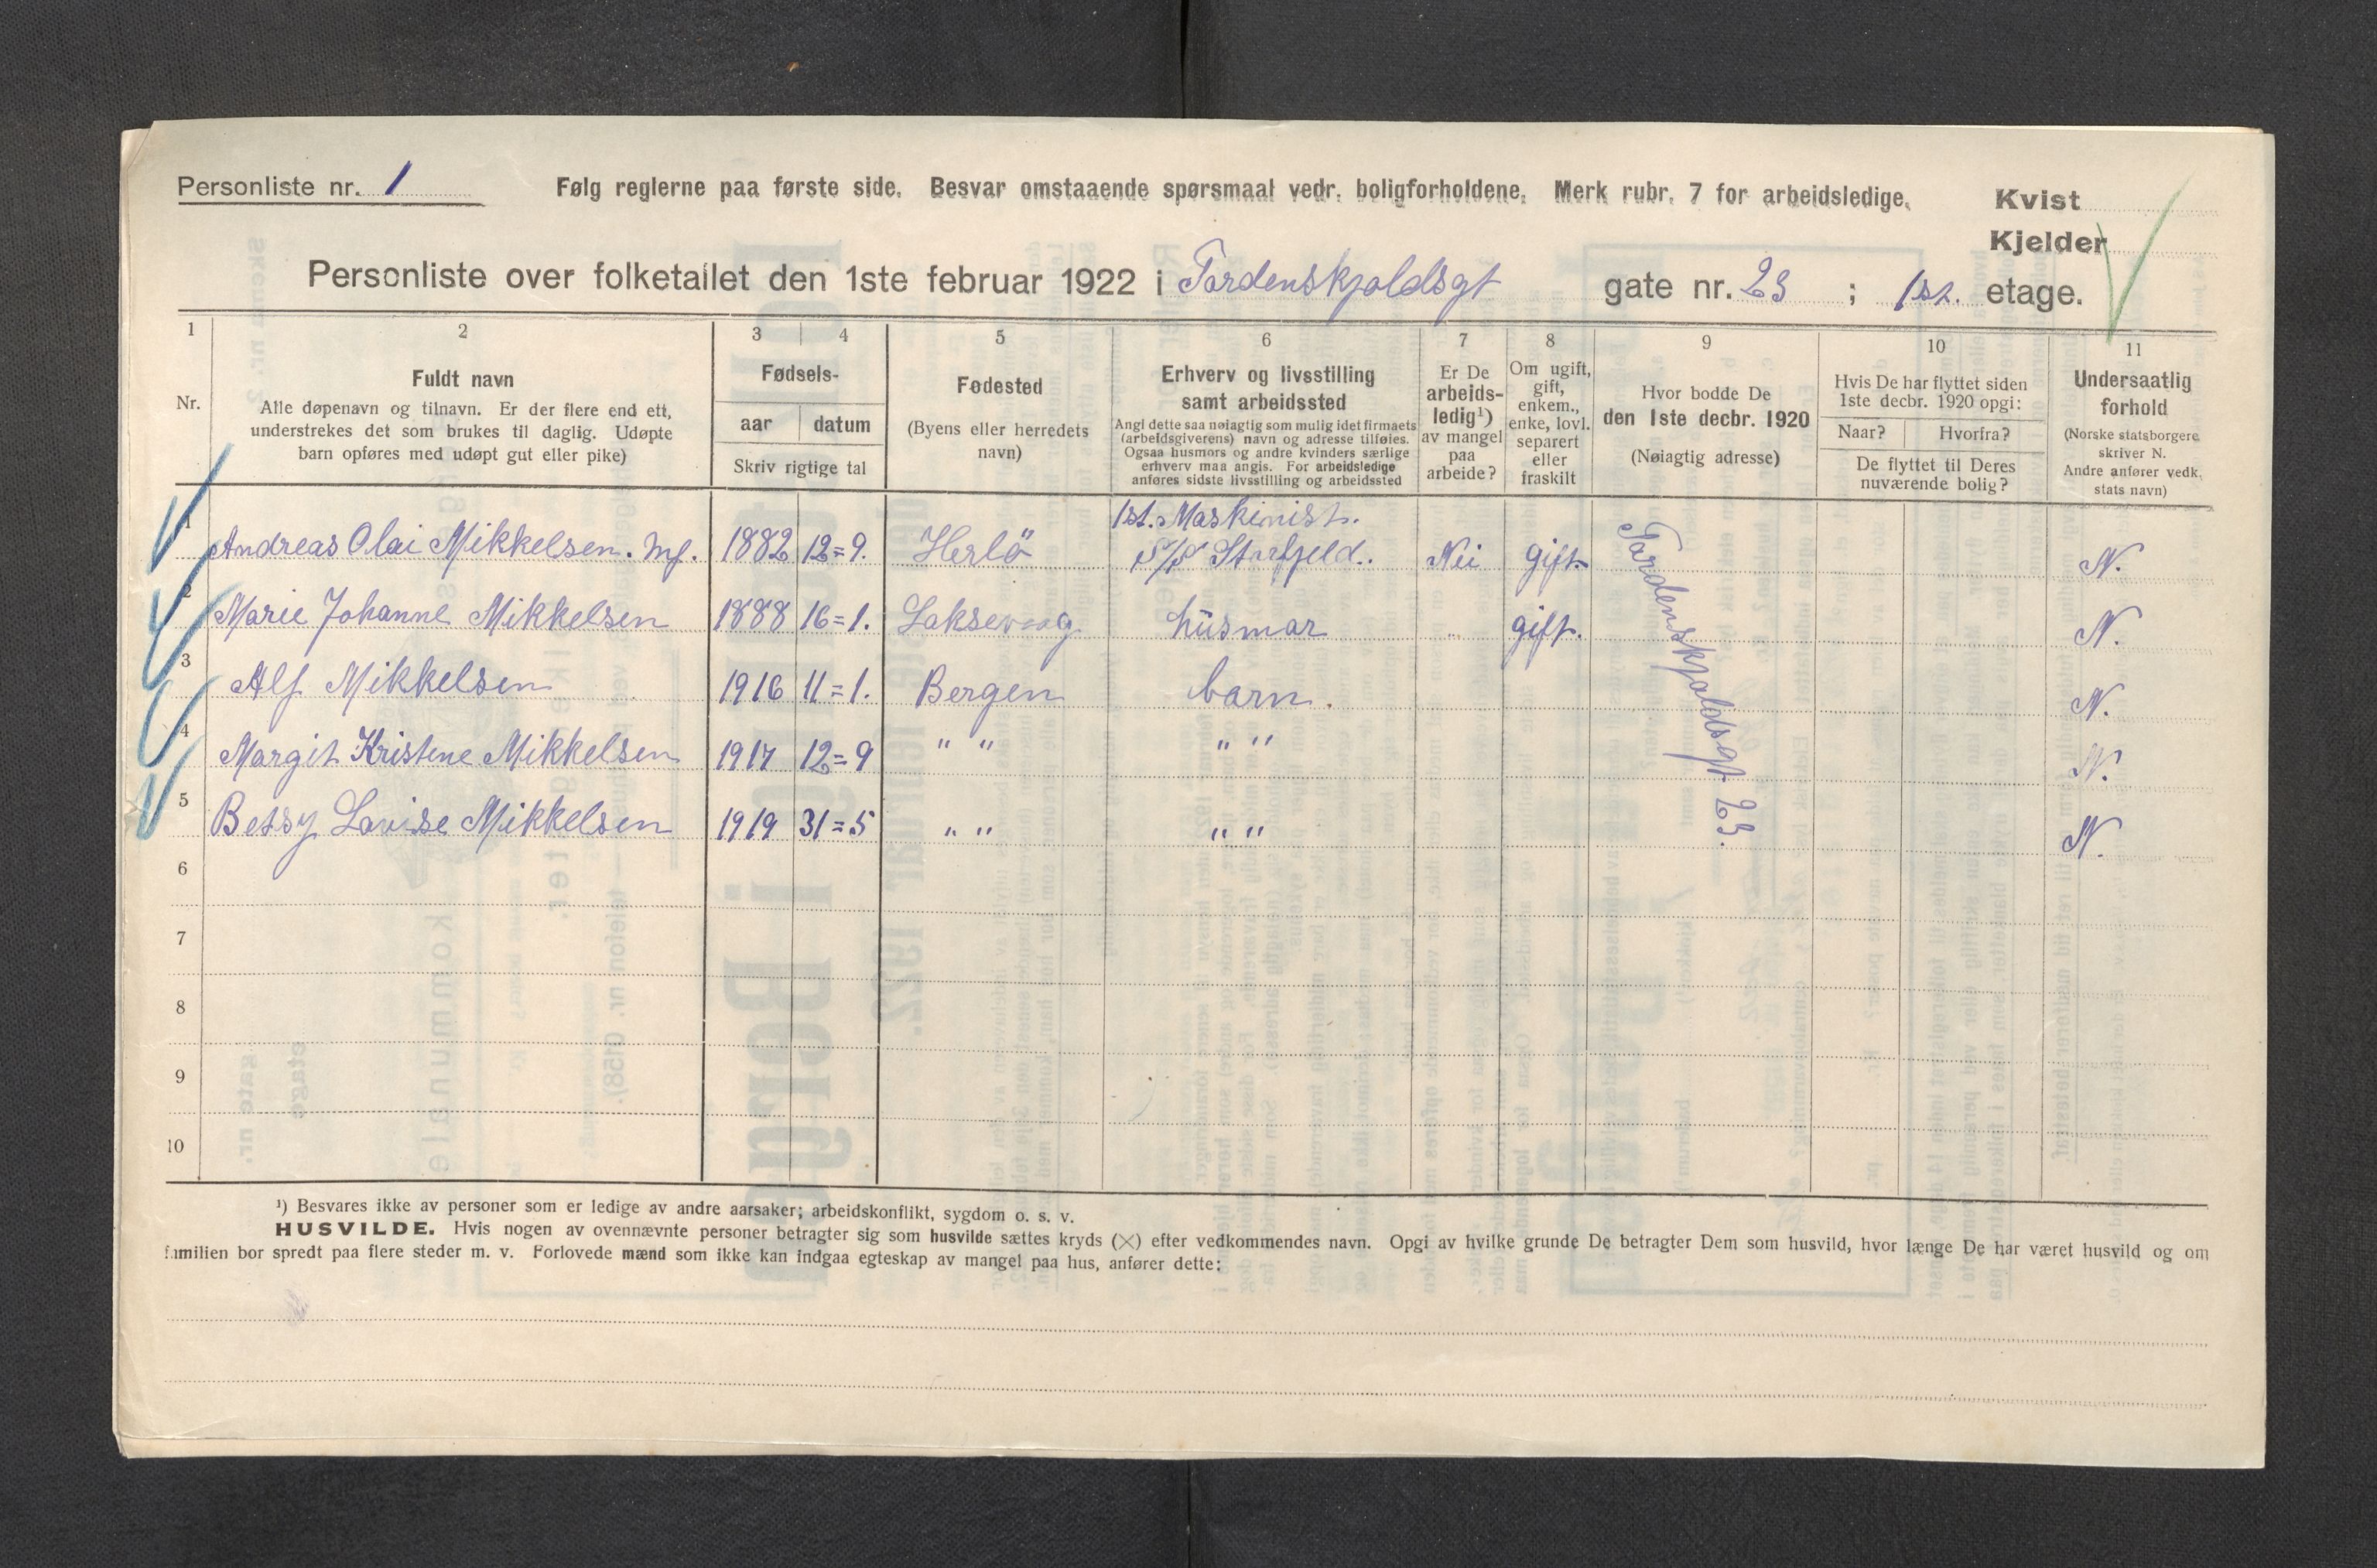 Personliste nr. 1
Følg reglerne paa første side. Besvar omstaaende spørsmaal vedr. boligforholdene. Merk rubr. 7 for arbeidsledige.
Kvist
Kjelder
Personliste over folketallet den 1ste februar 1922 i Tordenskjoldsgt gate nr. 23 ; 1st. etage.
1 2 3 4 5 6 7 8 9 10 11
Nr.
Fuldt navn
Alle døpenavn og tilnavn. Er der flere end ett,
understrekes det som brukes til daglig. Udøpte
barn opføres med udøpt gut eller pike)
Fødsels-
aar datum
Skriv rigtige tal
Fødested
(Byens eller herredets
navn)
Erhverv og livsstilling
samt arbeidssted
Angi dette saa nøiagtig som mulig idet firmaets
(arbeidsgiverens) navn og adresse tilføies.
Ogsaa husmors og andre kvinders særlige
erhverv maa angis. For arbeidsledige
anføres sidste livsstilling og arbeidssted
Er De
arbeids-
ledig¹)
av mangel
paa
arbeide?
Om ugift,
gift,
enkem.,
enke, lovl.
separert
eller
fraskilt
Hvor bodde De
den 1ste decbr. 1920
(Nøiagtig adresse)
Hvis De har flyttet siden
1ste decbr. 1920 opgi:
Naar? Hvorfra?
De flyttet til Deres
nuværende bolig?
Undersaatlig
forhold
(Norske statsborgere
skriver N.
Andre anfører vedk.
stats navn)
1 Andreas Olai Mikkelsen. Mf. 1882 12=9. Herlö 1st. Maskinist. S/S Storfjeld. Nei gift. N.
2 Marie Johanne Mikkelsen 1888 16=1. Laksevaag husmor " gift. N.
3 Alf Mikkelsen 1916 11=1. Bergen barn. N.
4 Margit Kristine Mikkelsen 1917 12=9 " " " " N.
5 Betsy Lovise Mikkelsen 1919 31=5 " " " " N.
Tordenskjoldsgt 23.
6
7
8
9
10
¹) Besvares ikke av personer som er ledige av andre aarsaker; arbeidskonflikt, sygdom o. s. v.
HUSVILDE. Hvis nogen av ovennævnte personer betragter sig som husvilde sættes kryds (×) efter vedkommendes navn. Opgi av hvilke grunde De betragter Dem som husvild, hvor længe De har været husvild og om
familien bor spredt paa flere steder m. v. Forlovede mænd som ikke kan indgaa egteskap av mangel paa hus, anfører dette: